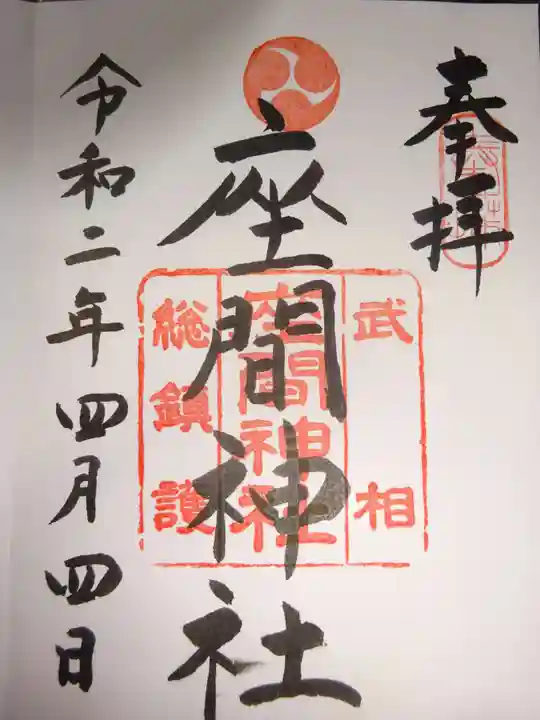 奉拝
武相
座間神社
座間神社
総鎮護
令和二年四月四日